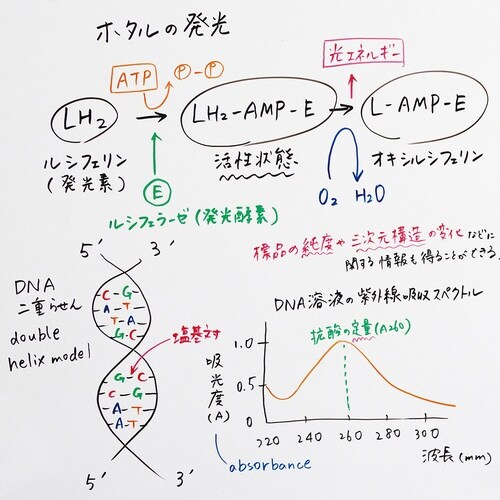 ホタルの発光
ATP
P-P
光エネルギー
LH2
LH2-AMP-E
L-AMP-E
ルシフェリン
(発光素)
活性状態
オキシルシフェリン
E
O2 H2O
ルシフェラーゼ(発光酵素)
標品の純度や三次元構造の変化などに
関する情報も得ることができる。
5' 3'
DNA
二重らせん
double
helix model
C-G
A-T
T-A
G-C
塩基対
G-C
C-G
A-T
A-T
5' 3'
DNA溶液の紫外線吸収スペクトル
核酸の定量(A260)
吸光度(A)
absorbance
1.0
0.5
0
220 260 280 300
波長(mm)